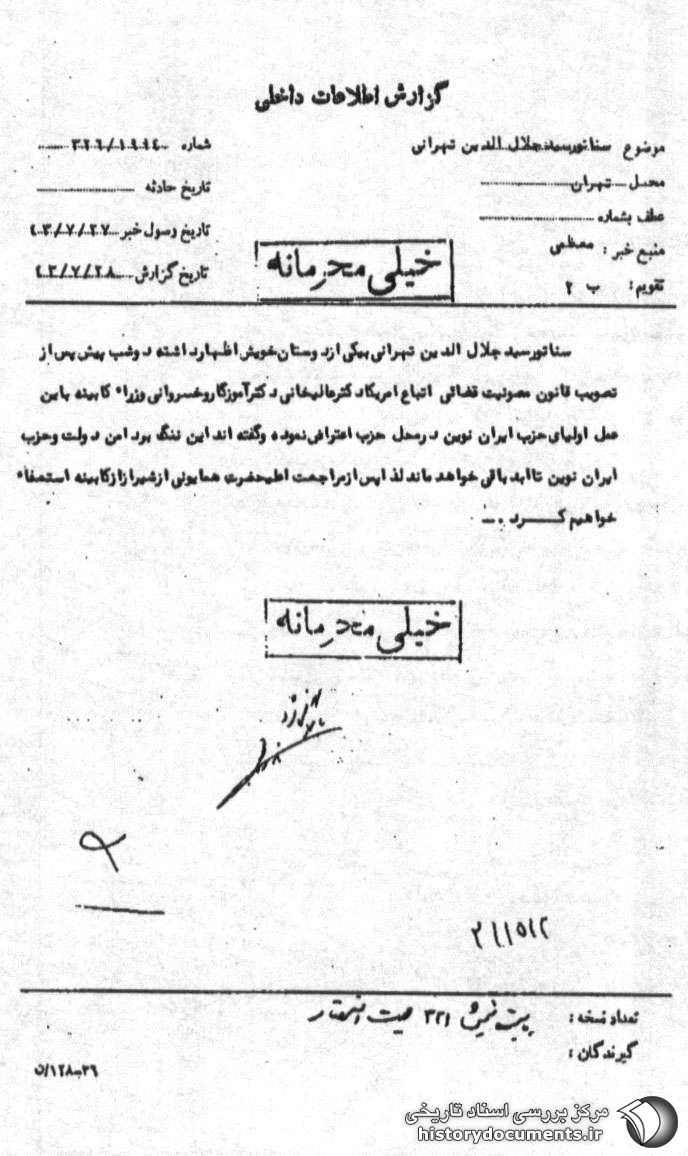 گزارش اطلاعات داخلی
موضوع سناتورسیدجلال الدین تهرانی
شماره ۳۲۶/۱۹۱۴
محل تهران
تاریخ حادثه
عطف بشماره
تاریخ وصول خبر ۴۳/۷/۲۷
منبع خبر : معظمی
تاریخ گزارش ۴۳/۷/۲۸
تقویم : ب ۲
خیلی محرمانه
سناتورسید جلال الدین تهرانی بیکی ازدوستان خویش اظهارداشته دوشب پیش پس از
تصویب قانون مصونیت قضائی اتباع امریکا دکترعالیخانی دکترآموزگاروخسروانی وزراء کابینه باین
عمل اولیای حزب ایران نوین درمحل حزب اعتراض نموده وگفته اند این ننگ بردامن دولت وحزب
ایران نوین تاابد باقی خواهد ماند لذا پس ازمراجعت اعلیحضرت همایونی ازشیراز ازکابینه استعفاء
خواهیم کرد .ـ
خیلی محرمانه
۲۱۱۵۱۲
تعداد نسخه : ۳۲۱
گیرندگان :
۳۶-۱۲۸/ن
مرکز بررسی اسناد تاریخی
historydocuments.ir